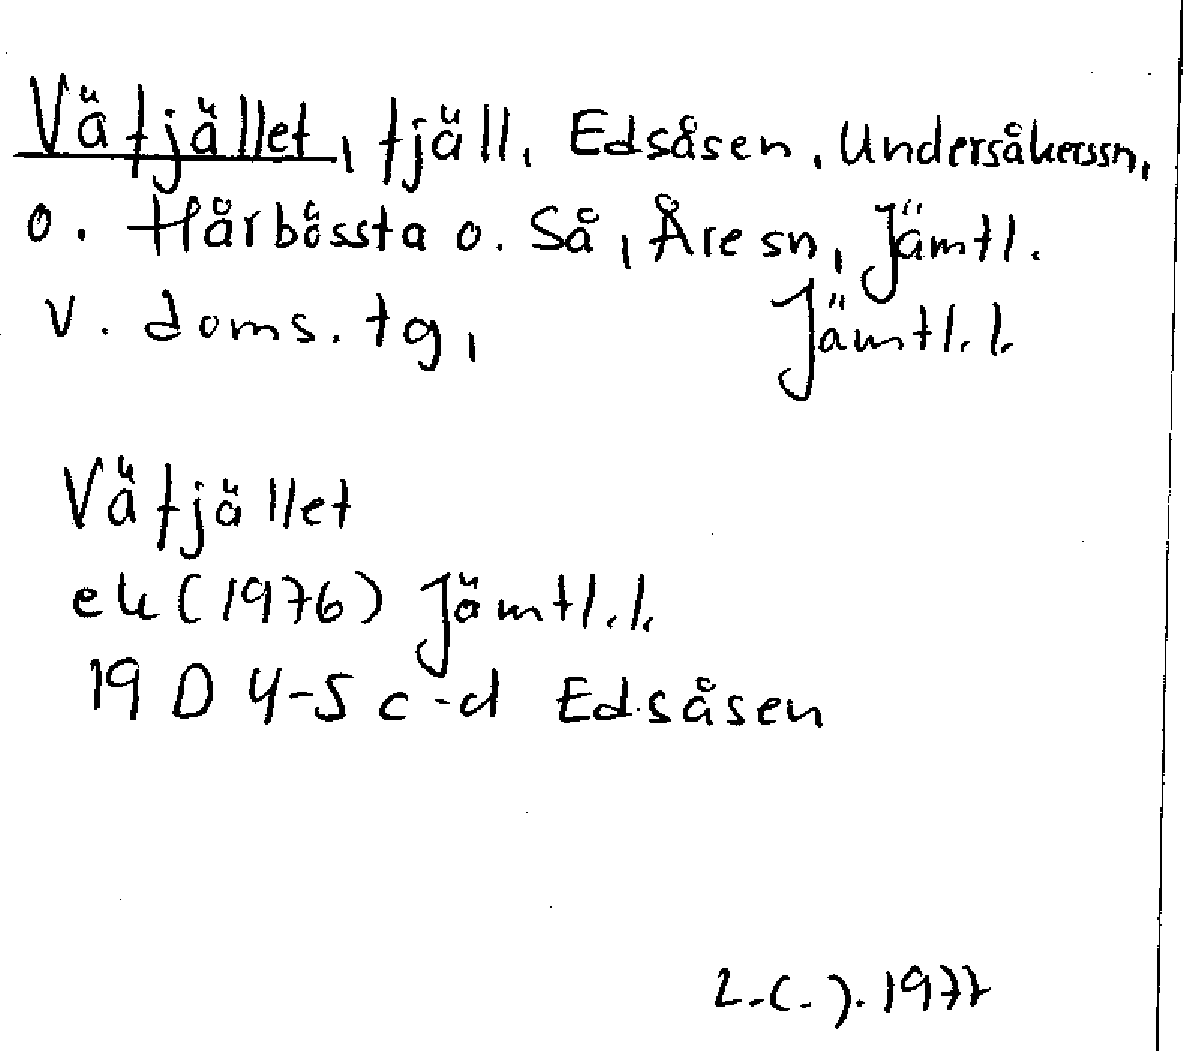 Väfjället, fjäll, Edsåsen, Undersåkers sn,
o. Hårbåssta o. Så, Åre sn, Jämtl.
v. doms. tg, Jämtl. l.
Väfjället
ek (1976) Jämtl. l.
19 D 4-5 c-d Edsåsen
L.C.J. 1977